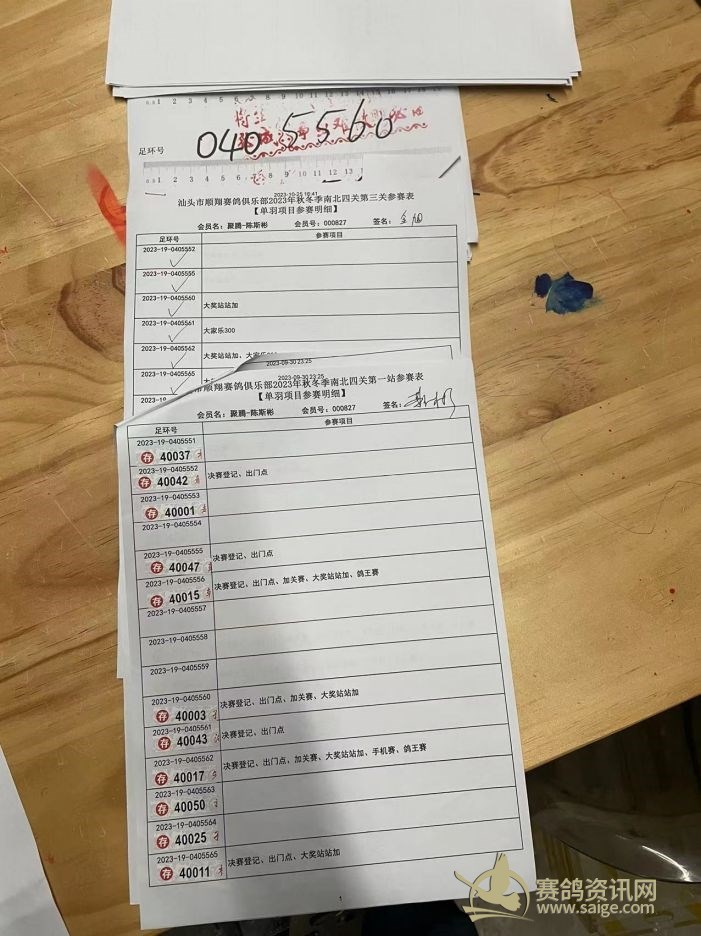 足环号
040 5560
2023-10-25 16:41
汕头市顺翔赛鸽俱乐部2023年秋冬季南北四关第三关参赛表
【单羽项目参赛明细】
会员名：聚腾-陈斯彬 会员号：000827 签名：
足环号 参赛项目
2023-19-0405552
2023-19-0405555
2023-19-0405560 大奖站站加
2023-19-0405561 大家乐300
2023-19-0405562 大奖站站加、大家乐
2023-19-0405565
2023-09-30 23:25
2023-09-30 23:25
市顺翔赛鸽俱乐部2023年秋冬季南北四关第一站参赛表
【单羽项目参赛明细】
会员名：聚腾-陈斯彬 会员号：000827 签名：
足环号 参赛项目
2023-19-0405551
存 40037
2023-19-0405552 决赛登记、出门点
存 40042
2023-19-0405553
存 40001
2023-19-0405554
2023-19-0405555 决赛登记、出门点
存 40047
2023-19-0405556 决赛登记、出门点、加关赛、大奖站站加、鸽王赛
存 40015
2023-19-0405557
2023-19-0405558
2023-19-0405559
2023-19-0405560 决赛登记、出门点、加关赛、大奖站站加
存 40003
2023-19-0405561 决赛登记、出门点
存 40043
2023-19-0405562 决赛登记、出门点、加关赛、大奖站站加、手机赛、鸽王赛
存 40017
2023-19-0405563
存 40050
2023-19-0405564
存 40025
2023-19-0405565 决赛登记、出门点、大奖站站加
存 40011
1
赛鸽资讯网
www.saige.com